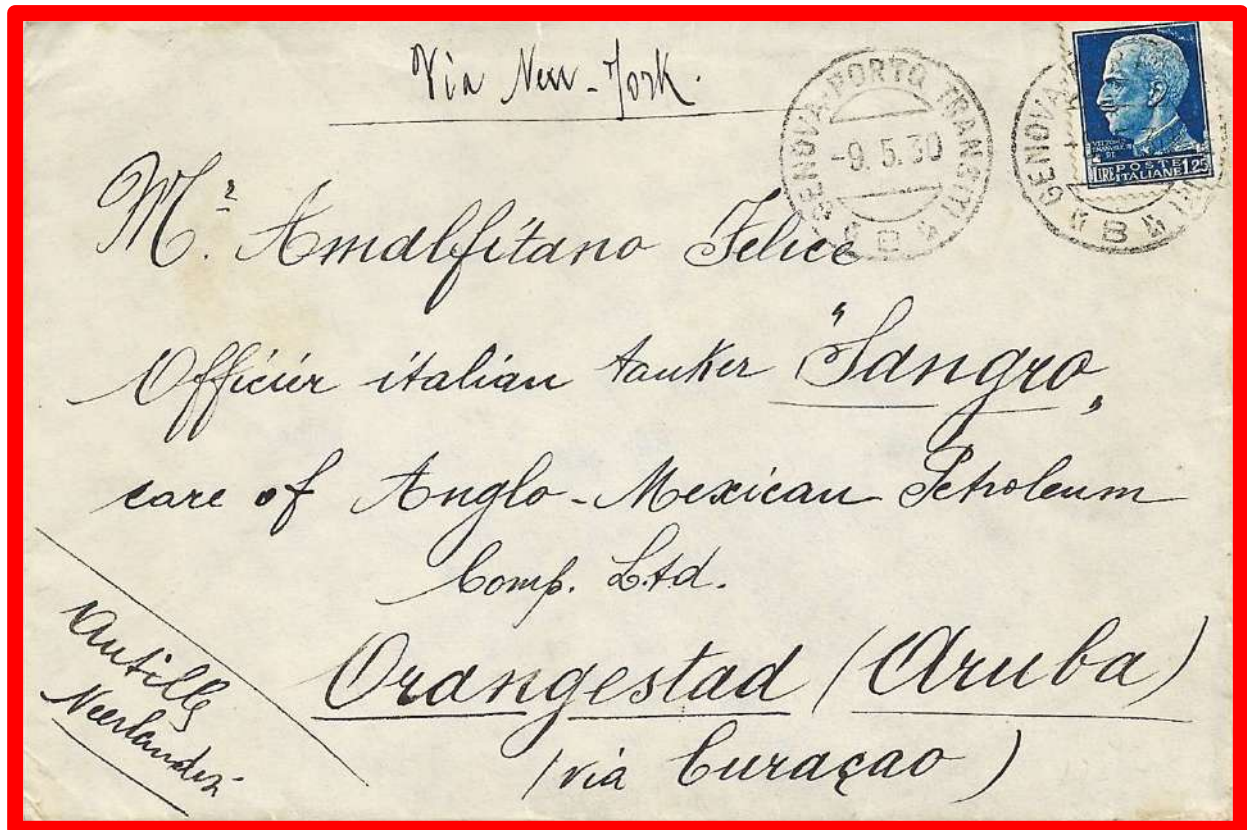 Via New-York.
GENOVA-PORTO TRANSITI
-9.5.30
B
GENOVA
B
VITTORIO
EMANUELE III
RE
LIRE POSTE ITALIANE 1.25
Mr. Amalfitano Felice
Officier italian tanker "Sangro"
care of Anglo-Mexican Petroleum
Comp. Ltd.
Orangestad (Aruba)
(via Curaçao)
Antille
Neerlandesi